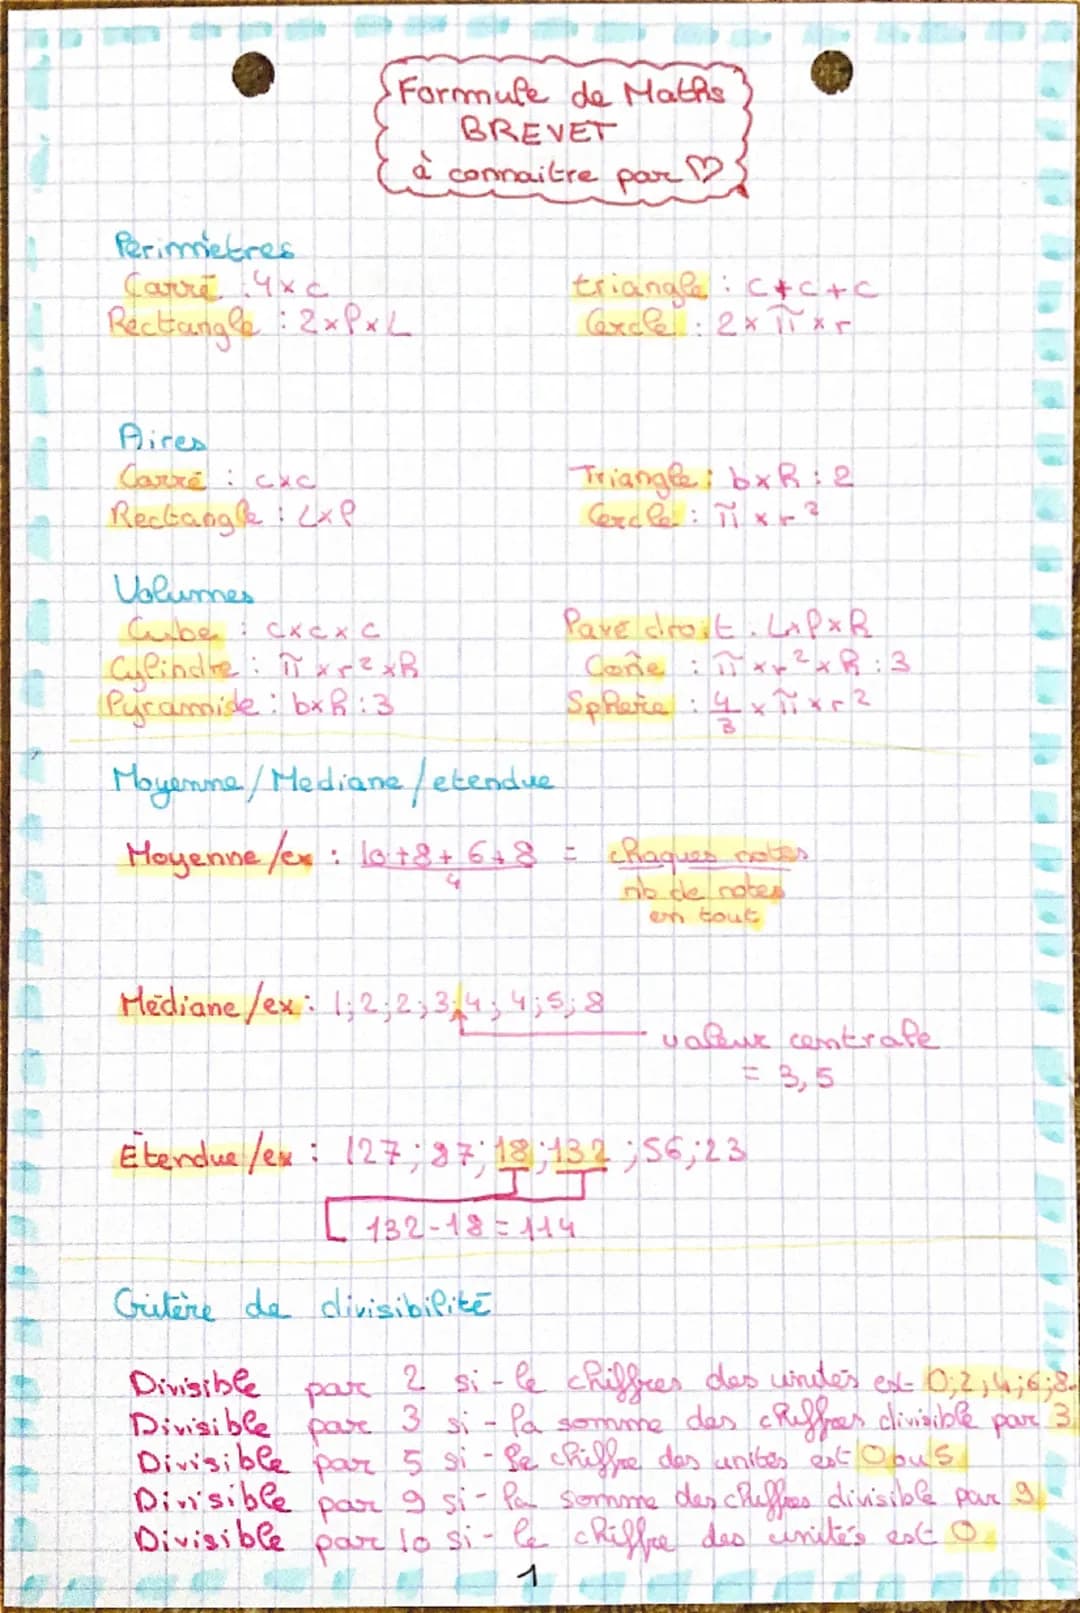 Formule de Maths
BREVET
à connaitre par ♡
Périmètres
Carré : 4 x c
triangle : c + c + c
Rectangle : 2 x l x L
Cercle : 2 x π x r
Aires
Carré : c x c
Triangle : b x h : 2
Rectangle : L x l
Cercle : π x r²
Volumes
Cube : c x c x c
Pavé droit : L x l x h
Cylindre : π x r² x h
Cône : π x r² x h : 3
Pyramide : b x h : 3
Sphère : 4/3 x π x r²
Moyenne / Mediane / etendue
Moyenne / ex : 10 + 8 + 6 + 8 = chaques notes
4
nb de notes
en tout
Médiane / ex : 1 ; 2 ; 2 ; 3 ; 4 ; 4 ; 5 ; 8
valeur centrale
= 3,5
Étendue / ex : 127 ; 87 ; 18 ; 132 ; 56 ; 23
132 - 18 = 114
Critère de divisibilité
Divisible par 2 si - le chiffres des unités est 0;2;4;6;8.
Divisible par 3 si - la somme des chiffres divisible par 3
Divisible par 5 si - le chiffre des unités est 0 ou 5
Divisible par 9 si - la somme des chiffres divisible par 9
Divisible par 10 si - le chiffre des unités est 0.
1